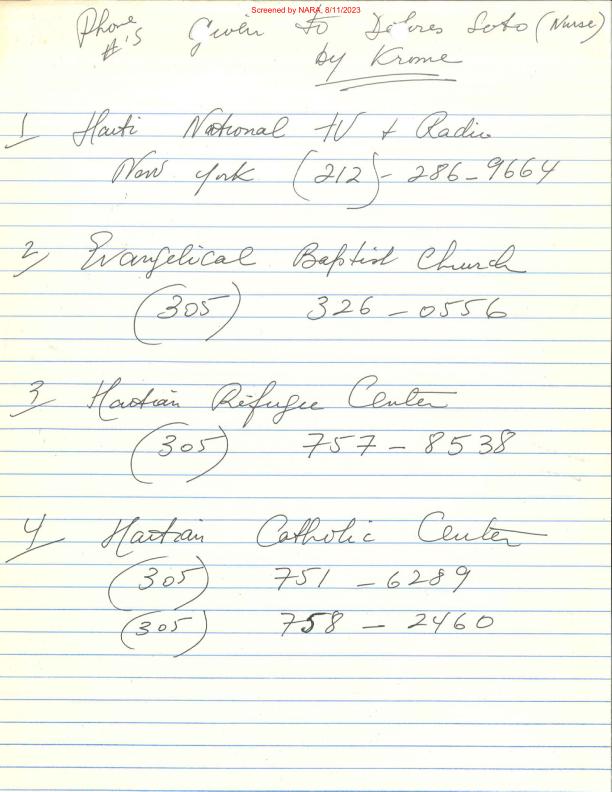 Screened by NARA, 8/11/2023
Phone #'s Given to Delores Soto (Nurse)
by Krome
1 Haiti National TV + Radio
New York (212) - 286-9664
2 Evangelical Baptist Church
(305) 326-0556
3 Haitian Refugee Center
(305) 757-8538
4 Haitian Catholic Center
(305) 751-6289
(305) 758-2460